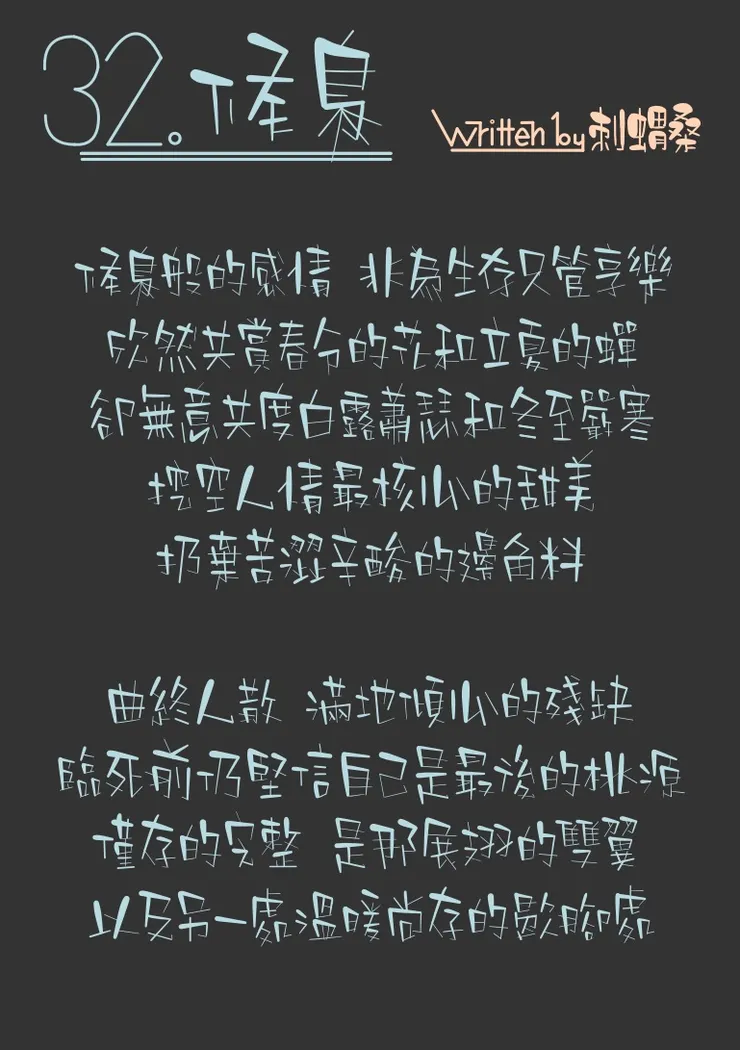 32.候鳥
Written by 刺蝟桑
候鳥般的感情 非為生存只管享樂
欣然共賞春分的花和立夏的蟬
卻無意共度白露蕭瑟和冬至嚴寒
挖空人情最核心的甜美
扔棄苦澀辛酸的邊角料
曲終人散 滿地傾心的殘缺
臨死前仍堅信自己是最後的桃源
僅存的完整 是那展翅的雙翼
以及另一處溫暖尚存的歇腳處